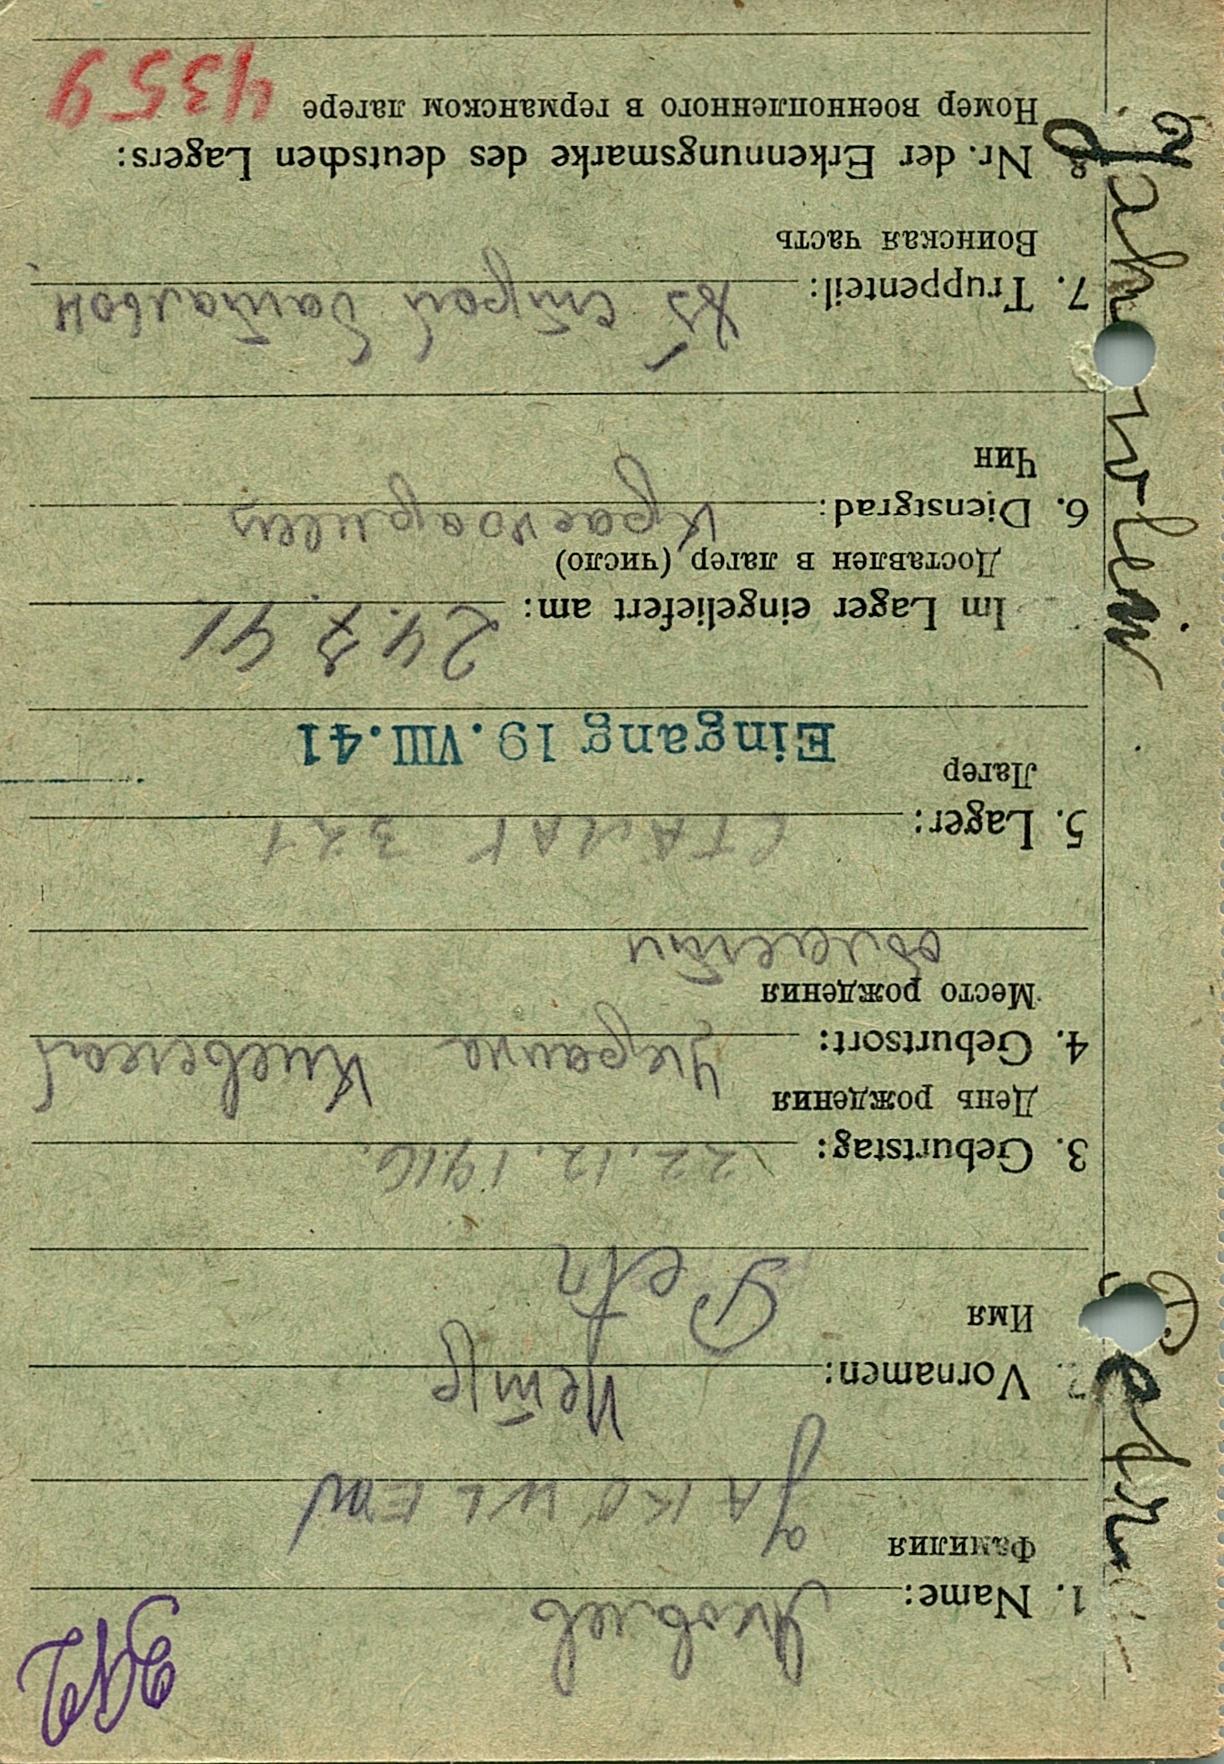 1. Name: Яковлев
Фамилия
JAKOWLEW
Vornamen: Петр
Имя
Petr
3. Geburtstag: 22.12.1916.
День рождения
4. Geburtsort: Украина Киевской
Место рождения
области
5. Lager: СТАЛАГ 321
Лагер
Eingang 19.VIII.41
Im Lager eingeliefert am: 24.7.41
Доставлен в лагер (число)
6. Dienstgrad: Красноармеец
Чин
7. Truppenteil: строй батальон
Воинская часть
8. Nr. der Erkennungsmarke des deutschen Lagers:
Номер военнопленного в германском лагере 4359
Jakowlew
Petr